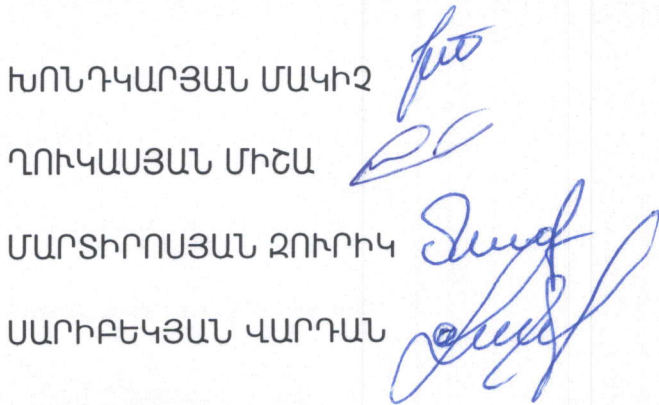 ԽՈՆԴԿԱՐՅԱՆ ՄԱԿԻՉ
ՂՈՒԿԱՍՅԱՆ ՄԻՇԱ
ՄԱՐՏԻՐՈՍՅԱՆ ԶՈՒՐԻԿ
ՍԱՐԻԲԵԿՅԱՆ ՎԱՐԴԱՆ